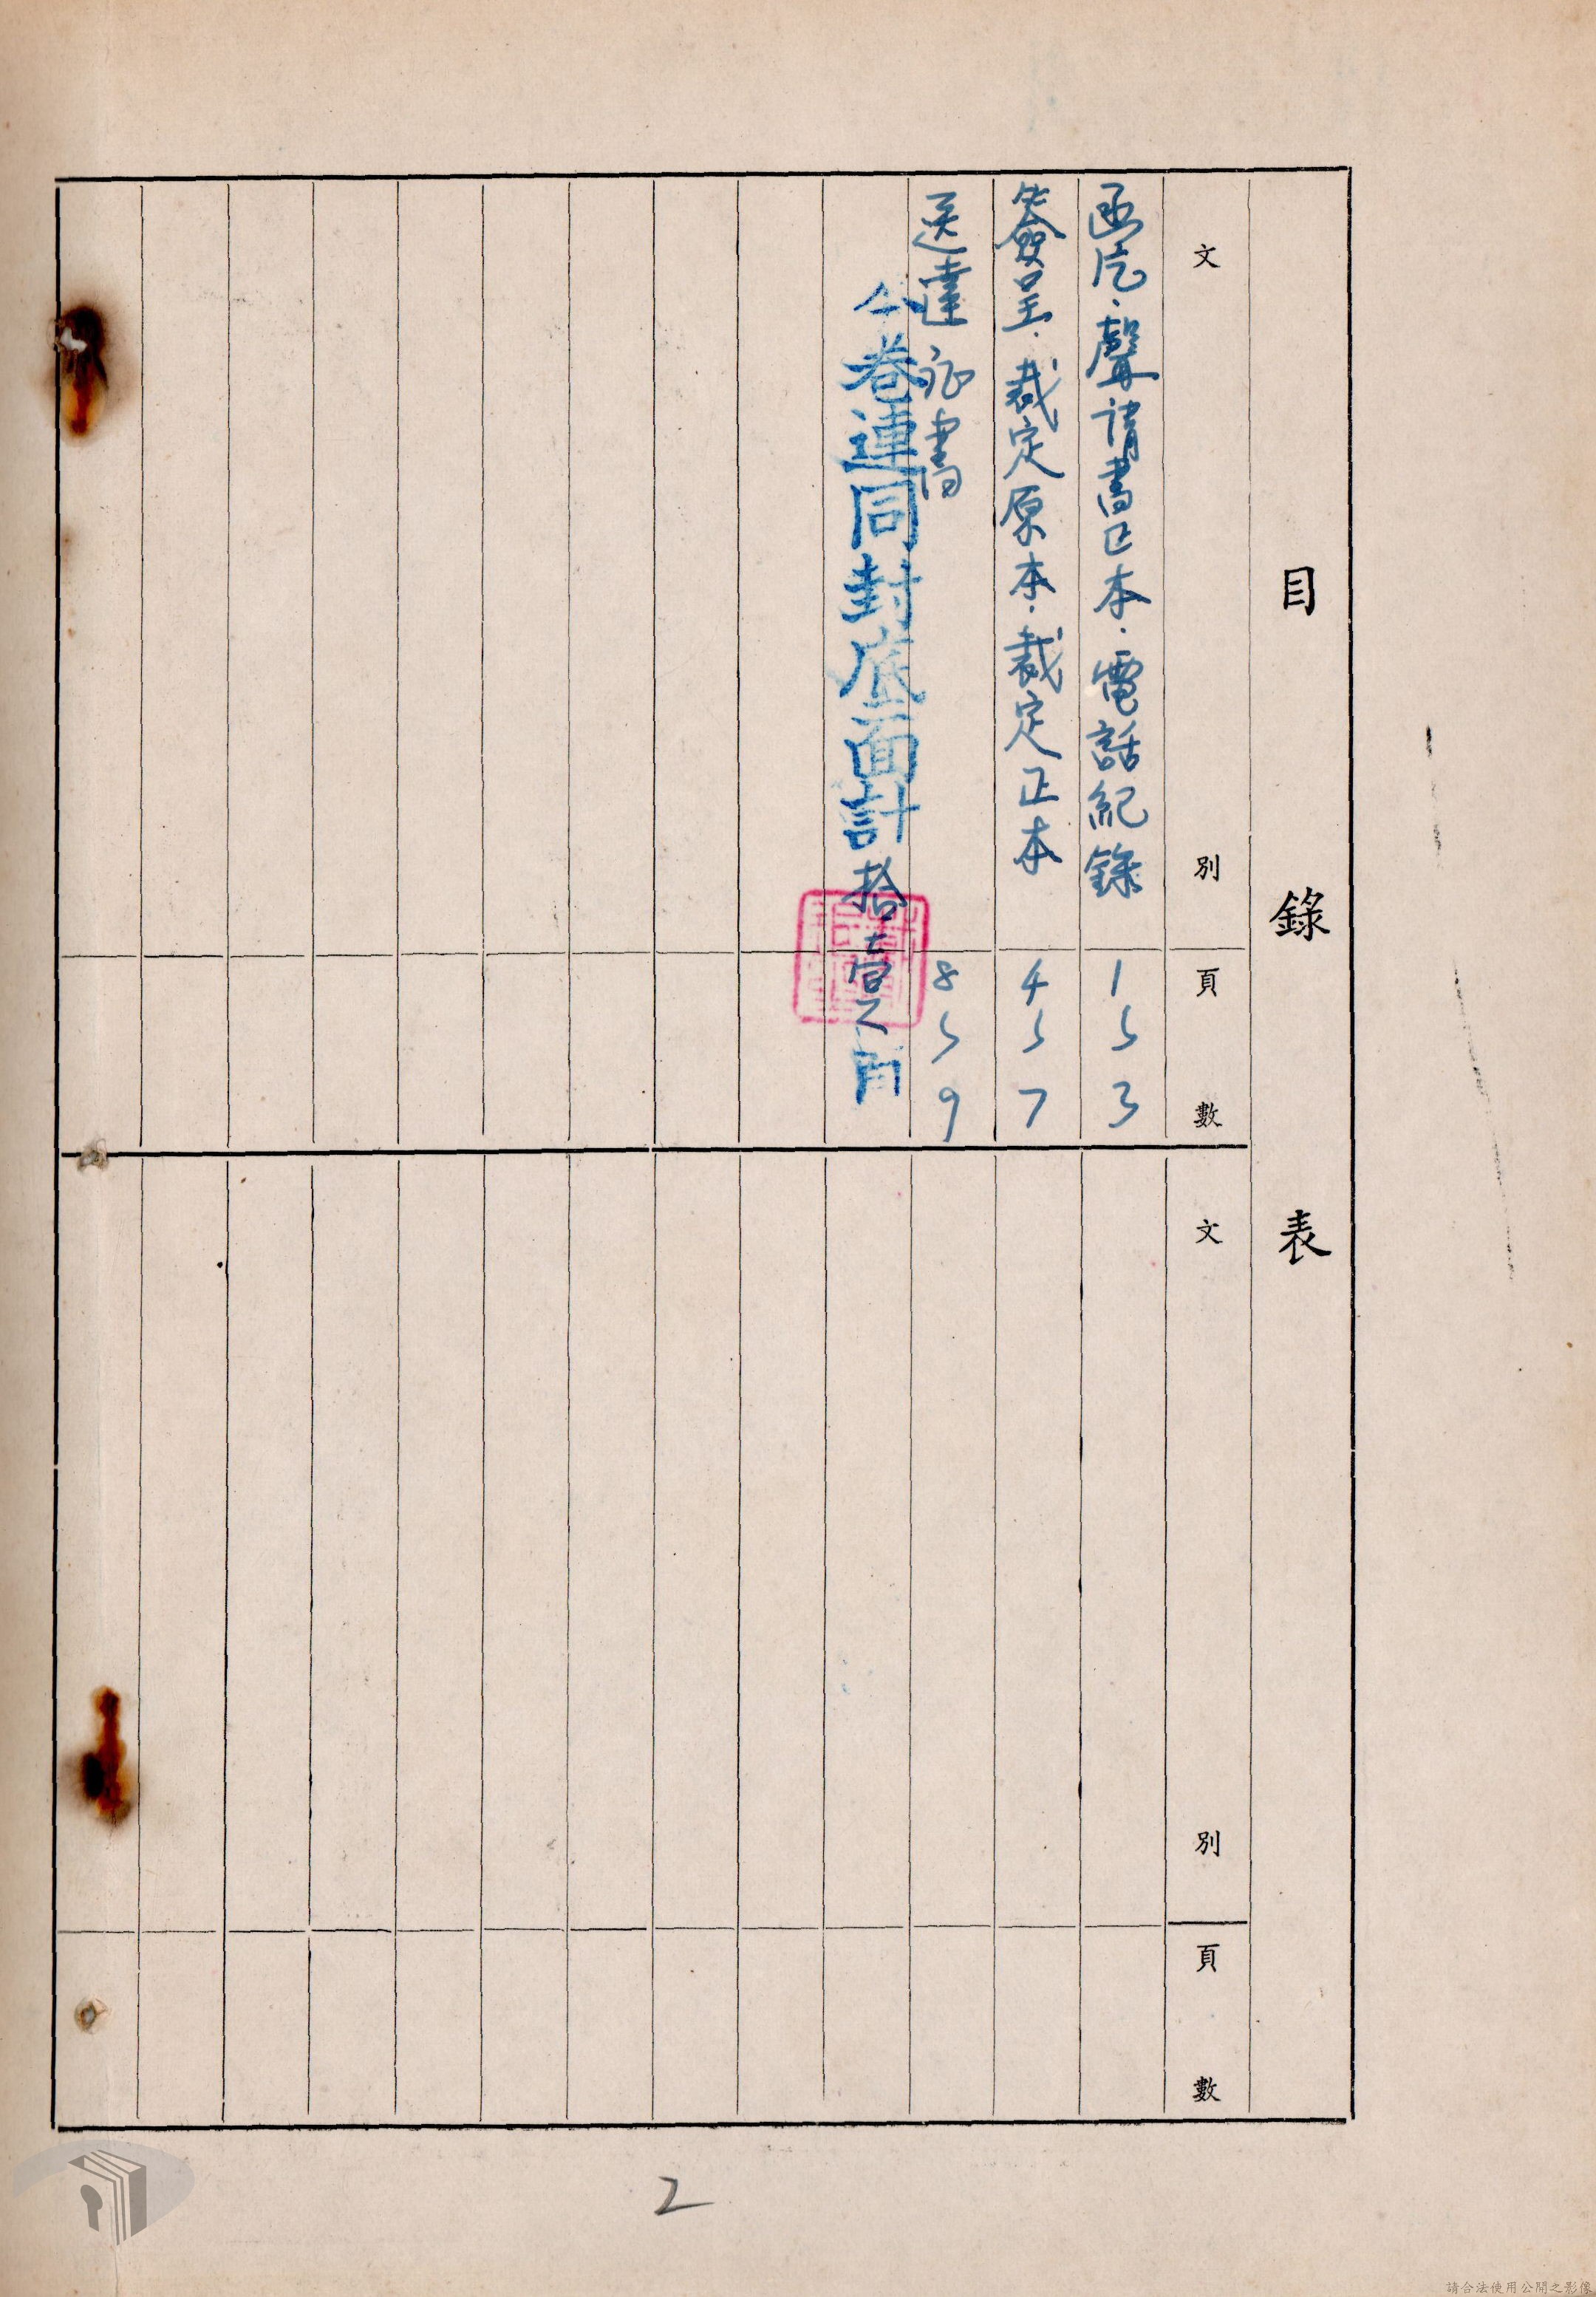 目錄表
文別
頁數
函片.聲請書正本.電話紀錄
1〜3
簽呈.裁定原本.裁定正本
4〜7
送達証書
8〜9
卷連同封底面計拾壹頁
文別
頁數
2
請合法使用公開之影像